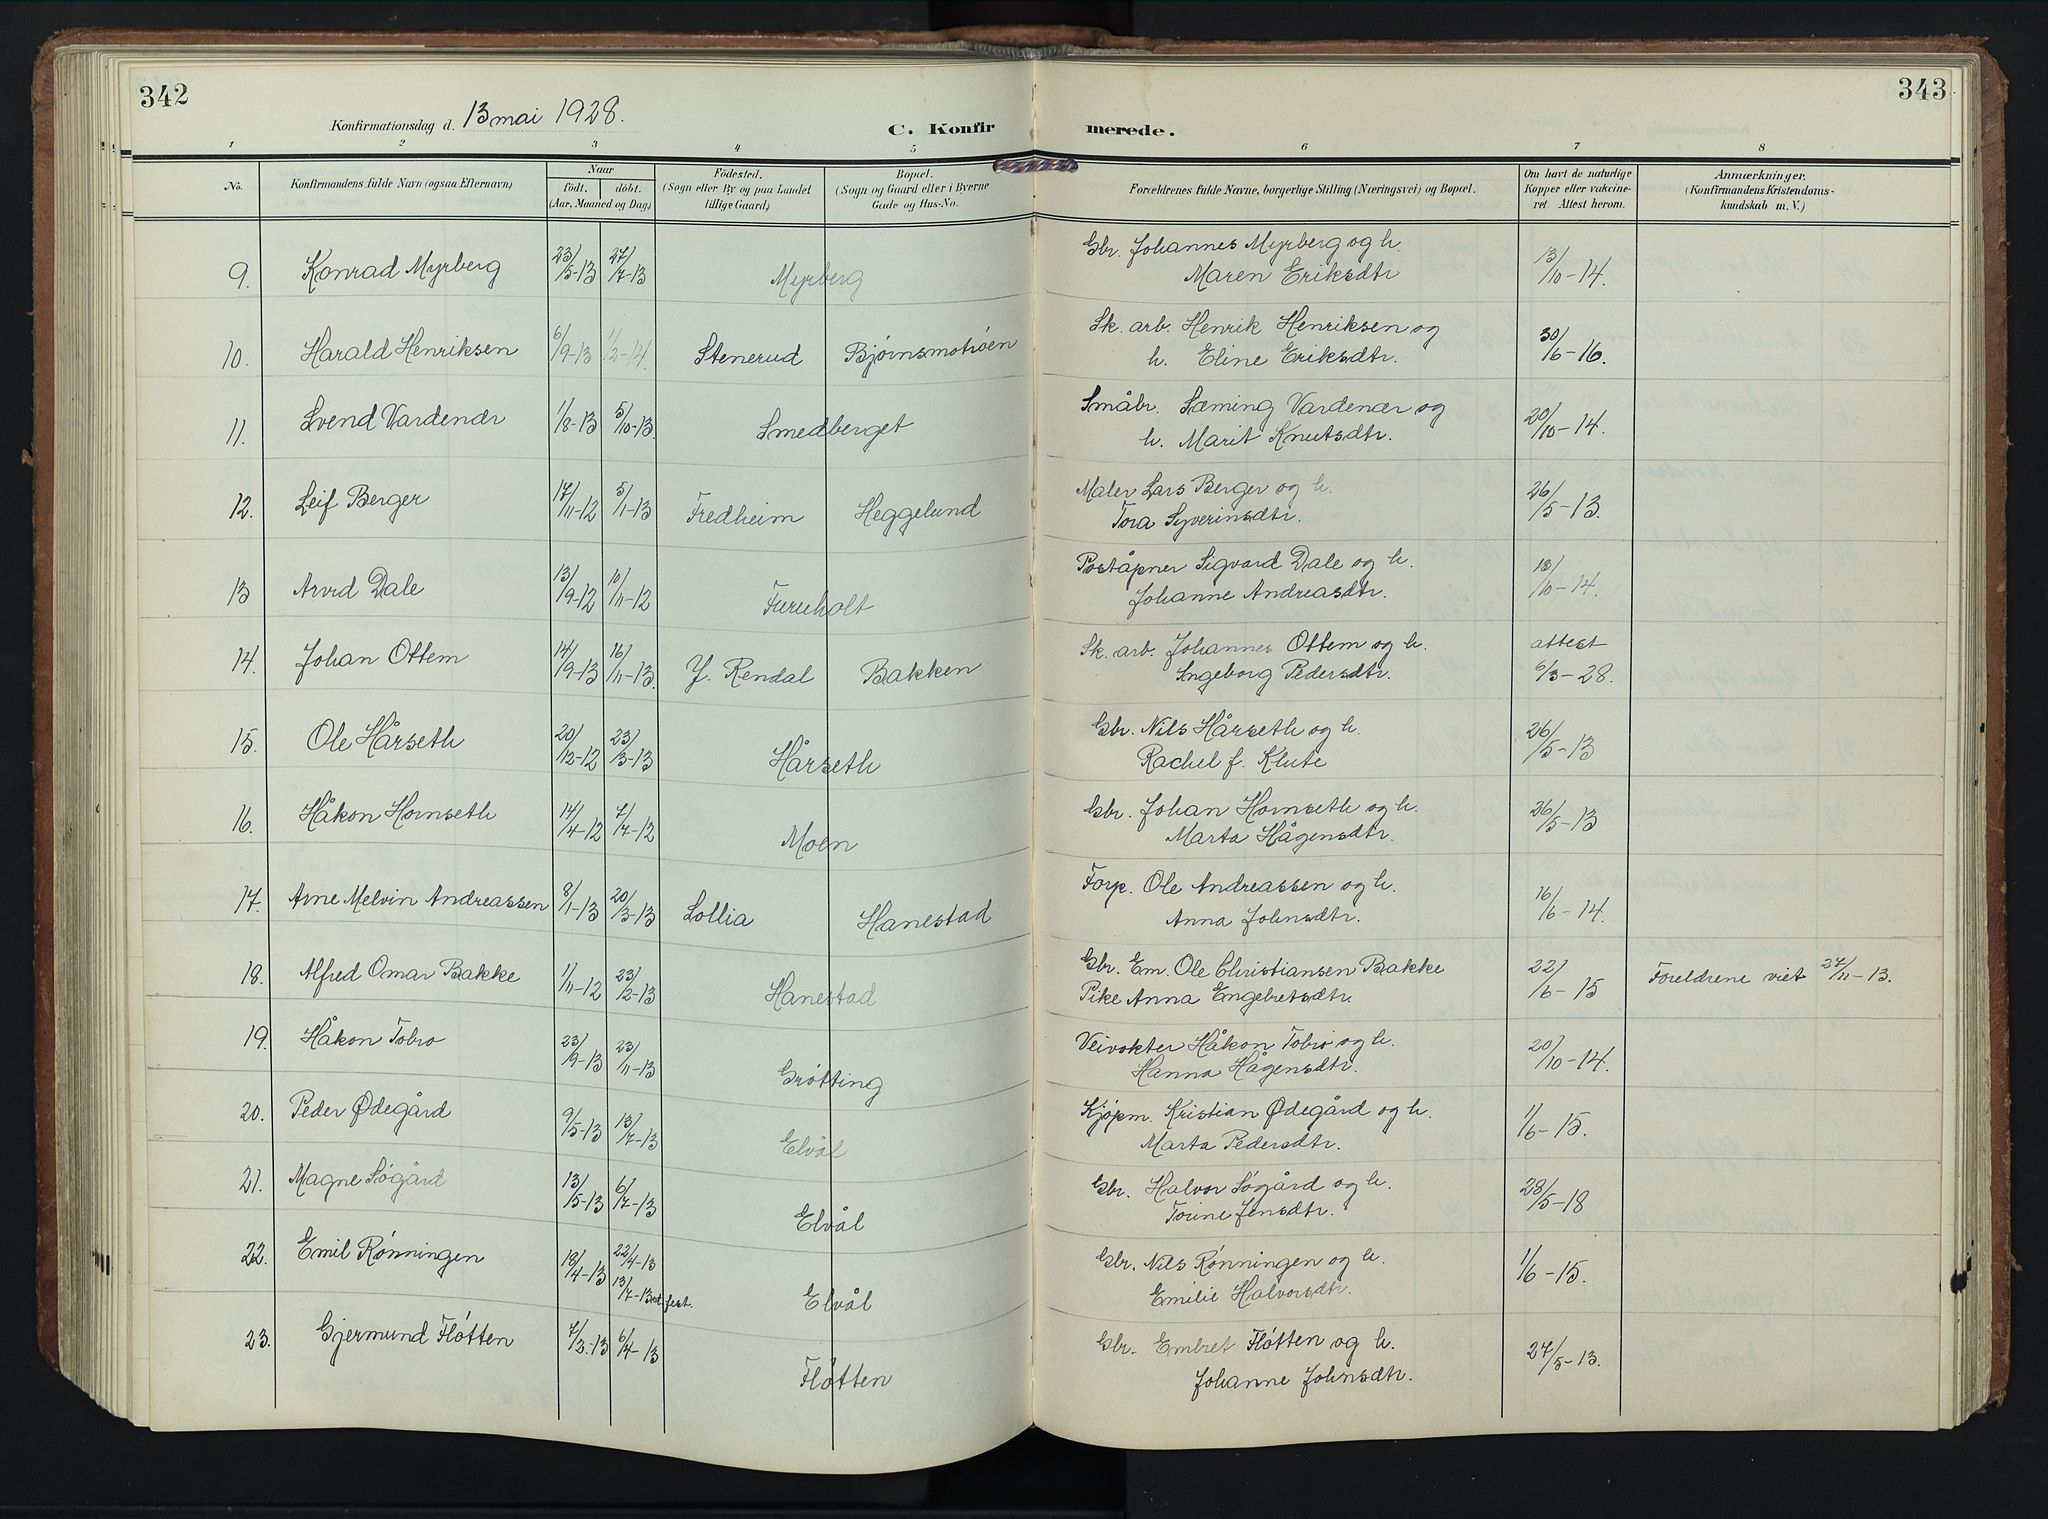 342
Konfirmationsdag d. 13 mai 1928.
C. Konfirmerede.
343
1 2 3 4 5 6 7 8
No.
Konfirmandens fulde Navn (ogsaa Efternavn)
Naar
født. døbt.
(Aar, Maaned og Dag)
Fødested.
(Sogn eller By og paa Landet
tillige Gaard)
Bopæl.
(Sogn og Gaard eller i Byerne
Gade og Hus-No.
Forældrenes fulde Navne, borgerlige Stilling (Næringsvei) og Bopæl.
Om havt de naturlige
Kopper eller vakcine-
ret. Attest herom.
Anmærkninger.
(Konfirmandens Kristendoms-
kundskab m. V.)
9. Konrad Myrberg 23/5-13 27/7-13 Myrberg Gbr. Johannes Myrberg og h. 13/10-14.
Maren Eriksdtr
10. Harald Henriksen 6/9-13 1/2-14. Stenerud Bjørnsmotrøen Sk. arb. Henrik Henriksen og 30/6-16.
h. Eline Eriksdtr.
11. Svend Vardenær 1/8-13 5/10-13. Smedberget Småbr. Sæming Vardenær og 20/10-14.
h. Marit Knutsdtr.
12. Leif Berger 17/11-12 5/1-13 Fredheim Heggelund Maler Lars Berger og h. 26/5-13.
Tora Syverinsdtr.
13 Arvid Dale 13/9-12 10/11-12 Furuholt Poståpner Sigvard Dale og h. 13/10-14.
Johanne Andreasdtr.
14. Johan Ottem 14/9-13 16/11-13. Y. Rendal Bakken Sk. arb. Johannes Ottem og h. attest
Ingeborg Pedersdtr. 6/3-28.
15. Ole Hårseth 20/12-12 23/3-13 Hårseth Gbr. Nils Hårseth og h. 26/5-13
Rachel f. Klute
16. Håkon Hornseth 14/4-12 7/7-12 Moen Gbr. Johan Hornseth og h. 26/5-13
Marta Hågensdtr.
17. Arne Melvin Andreassen 8/1-13 20/3-13 Sollia Hanestad Forp. Ole Andreassen og h. 16/6-14.
Anna Johnsdtr.
18. Alfred Omar Bakke 1/11-12 23/2-13 Hanestad Gbr. Em. Ole Christiansen Bakke 22/6-15 Foreldrene viet 27/11-13.
Pike Anna Engebretsdtr.
19. Håkon Tobro 23/9-13 23/11-13 Grøtting Veivokter Håkon Tobro og h. 20/10-14.
Hanna Hågensdtr.
20. Peder Ødegård 9/5-13 13/7-13 Elvål Kjøpm. Kristian Ødegård og h. 1/6-15.
Marta Pedersdtr.
21. Magne Søgård 13/5-13 6/7-13 Elvål Gbr. Halvor Søgård og h. 28/5-18
Torine Jensdtr.
22. Emil Rønningen 18/4-13 22/4-13 Elvål Gbr. Nils Rønningen og h. 1/6-15.
13/7-13 st. fest. Emilie Halvorsdtr.
23. Gjermund Fløtten 7/2-13 6/4-13 Fløtten Gbr. Embret Fløtten og h. 27/5-13.
Johanne Johnsdtr.